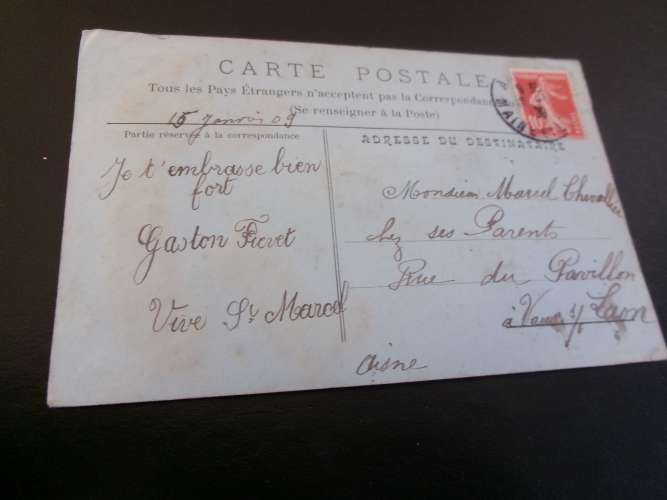 CARTE POSTALE
Tous les Pays Étrangers n'acceptent pas la Correspondance
(Se renseigner à la Poste)
15 Janvier 09
Partie réservée à la correspondance
ADRESSE DU DESTINATAIRE
Je t'embrasse bien
fort
Gaston Fievet
Vive St Marcel
Monsieur Marcel Chevallier
chez ses Parents
Rue du Pavillon
à Vaux s/ Laon
Aisne